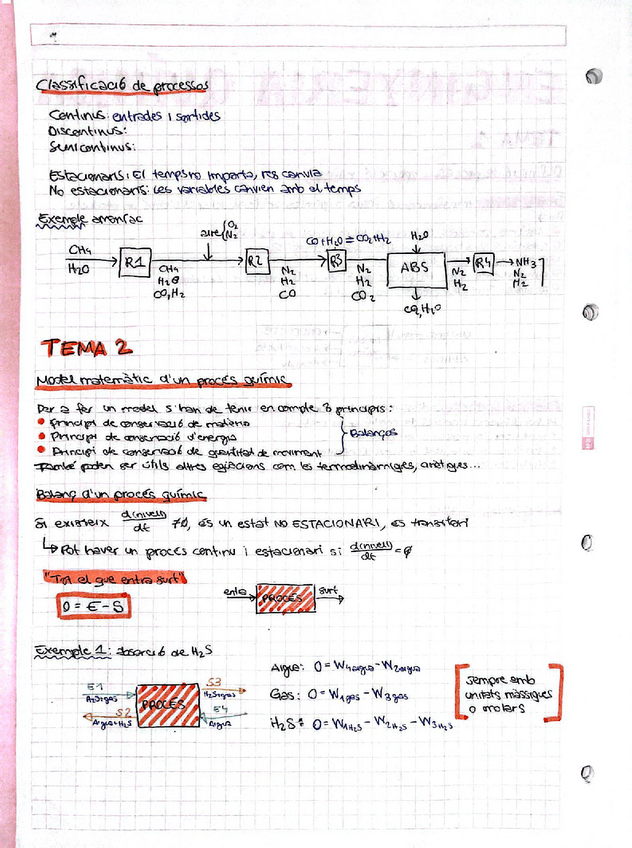 Classificació de processos
Continus: entrades i sortides
Discontinus:
Semicontinus:
Estacionaris: El temps no importa, res canvia
No estacionaris: Les variables canvien amb el temps
Exemple amoníac
aire { O2 N2
CO+H2O ⇌ CO2+H2
H2O
CH4
H2O
R1
R2
R3
ABS
R4
NH3
N2
H2
CH4
H2O
CO, H2
N2
H2
CO
N2
H2
CO2
N2
H2
CO2, H2O
TEMA 2
Model matemàtic d'un procés químic
Per a fer un model s'han de tenir en compte 3 principis:
Principi de conservació de matèria
Principi de conservació d'energia
Principi de conservació de quantitat de moviment
Balanços
També poden ser útils altres equacions com les termodinàmiques, cinètiques...
Balanç d'un procés químic
Si existeix d(nivell)/dt ≠0, és un estat NO ESTACIONARI, és transitori
↳ Pot haver un procés continu i estacionari si d(nivell)/dt = 0
"Tot el que entra surt"
0 = E - S
entra PROCÉS surt
Exemple 1: absorció de H2S
E1
H2S+gas
S2
Aigua+H2S
PROCÉS
S3
H2S+gas
E4
Aigua
Aigua: 0 = W4aigua - W2aigua
Gas: 0 = W1gas - W3gas
H2S: 0 = W1H2S - W2H2S - W3H2S
Sempre amb
unitats màssiques
o molars